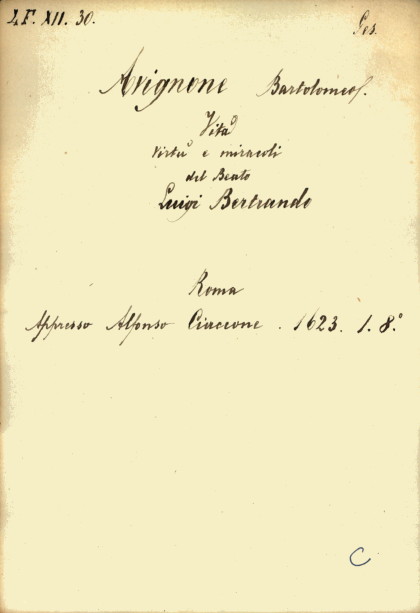 4 F. XII. 30. Ges.
Avignone Bartolomeo.
Vita
virtù e miracoli
del Beato
Luigi Bertrando
Roma
Appresso Alfonso Ciaccone. 1623. 1. 8.°
C